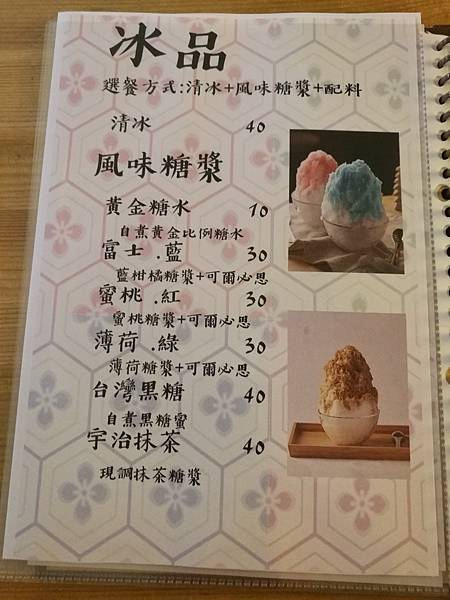 冰品
選餐方式:清冰+風味糖漿+配料
清冰 40
風味糖漿
黃金糖水 10
自煮黃金比例糖水
富士.藍 30
藍柑橘糖漿+可爾必思
蜜桃.紅 30
蜜桃糖漿+可爾必思
薄荷.綠 30
薄荷糖漿+可爾必思
台灣黑糖 40
自煮黑糖蜜
宇治抹茶 40
現調抹茶糖漿